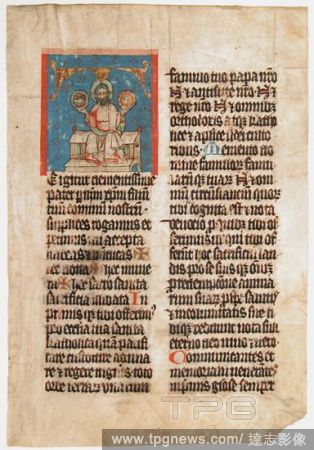 E igitur clementissime
pater per ihm xpm filium
tuum dominum nostrum
supplices rogamus et
petimus uti accepta
habeas et benedicas
hec dona hec mune
ra hec sancta
sacrificia illibata In
primis que tibi offerimus
pro ecclesia tua sancta
katholica quam pacifi
care custodire adunare
et regere digneris toto
orbe terrarum una cum
famulo tuo papa nostro
N et antistite nostro N et
rege nostro N et omnibus
orthodoxis atque katho
lice et apostolice fidei culto
ribus Memento do
mine famulorum famu
larumque tuarum N et om
nium circumstancium quorum
tibi fides cognita est et nota
devocio pro quibus tibi of
ferimus vel qui tibi offe
runt hoc sacrificium lau
dis pro se suisque omnibus
pro redempcione anima
rum suarum pro spe salutis
et incolumitatis sue ti
bique reddunt vota sua
eterno deo vivo et vero
Communicantes et
memoriam venerantes
inprimis gloriose semper
TPG
www.tpgnews.com/達志影像